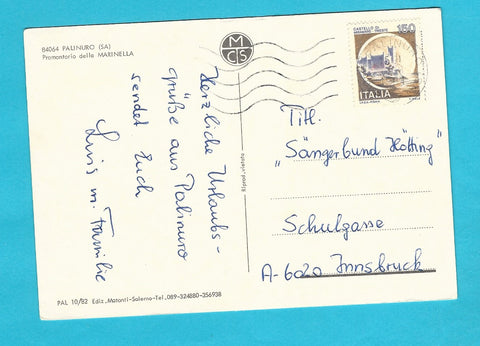 84064 PALINURO (SA)
Promontorio delle MARINELLA
M
C S
CASTELLO DI
MIRAMARE - TRIESTE
150
ITALIA
Herzliche Urlaubs-
grüße aus Palinuro
sendet Euch
Luis m. Familie
Riprod. vietata
Titl.
„Sängerbund Hötting"
Schulgasse
A-6020 Innsbruck
PAL 10/82 Ediz. Matonti-Salerno-Tel. 089-324880-256938